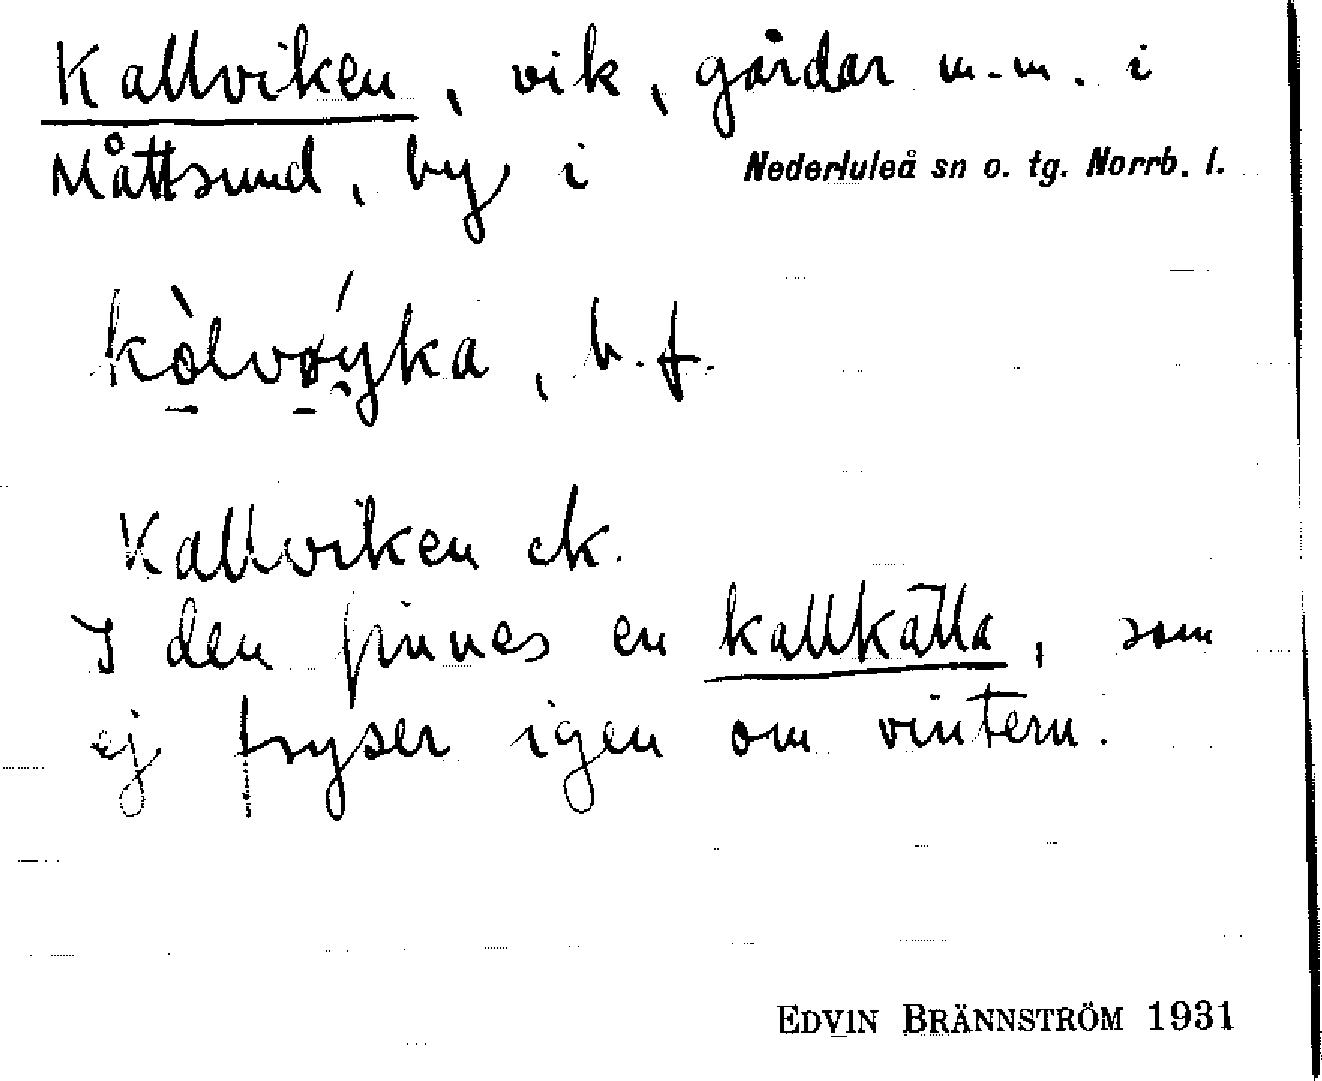 Kallviken, vik, gårdar m.m. i
Måttsund, by i Nederluleå sn o. tg. Norrb. l.
kò̠lvø̠ý̯ka, b.f.
Kallviken ek.
I den finnes en kallkälla, som
ej fryser igen om vintern.
EDVIN BRÄNNSTRÖM 1931